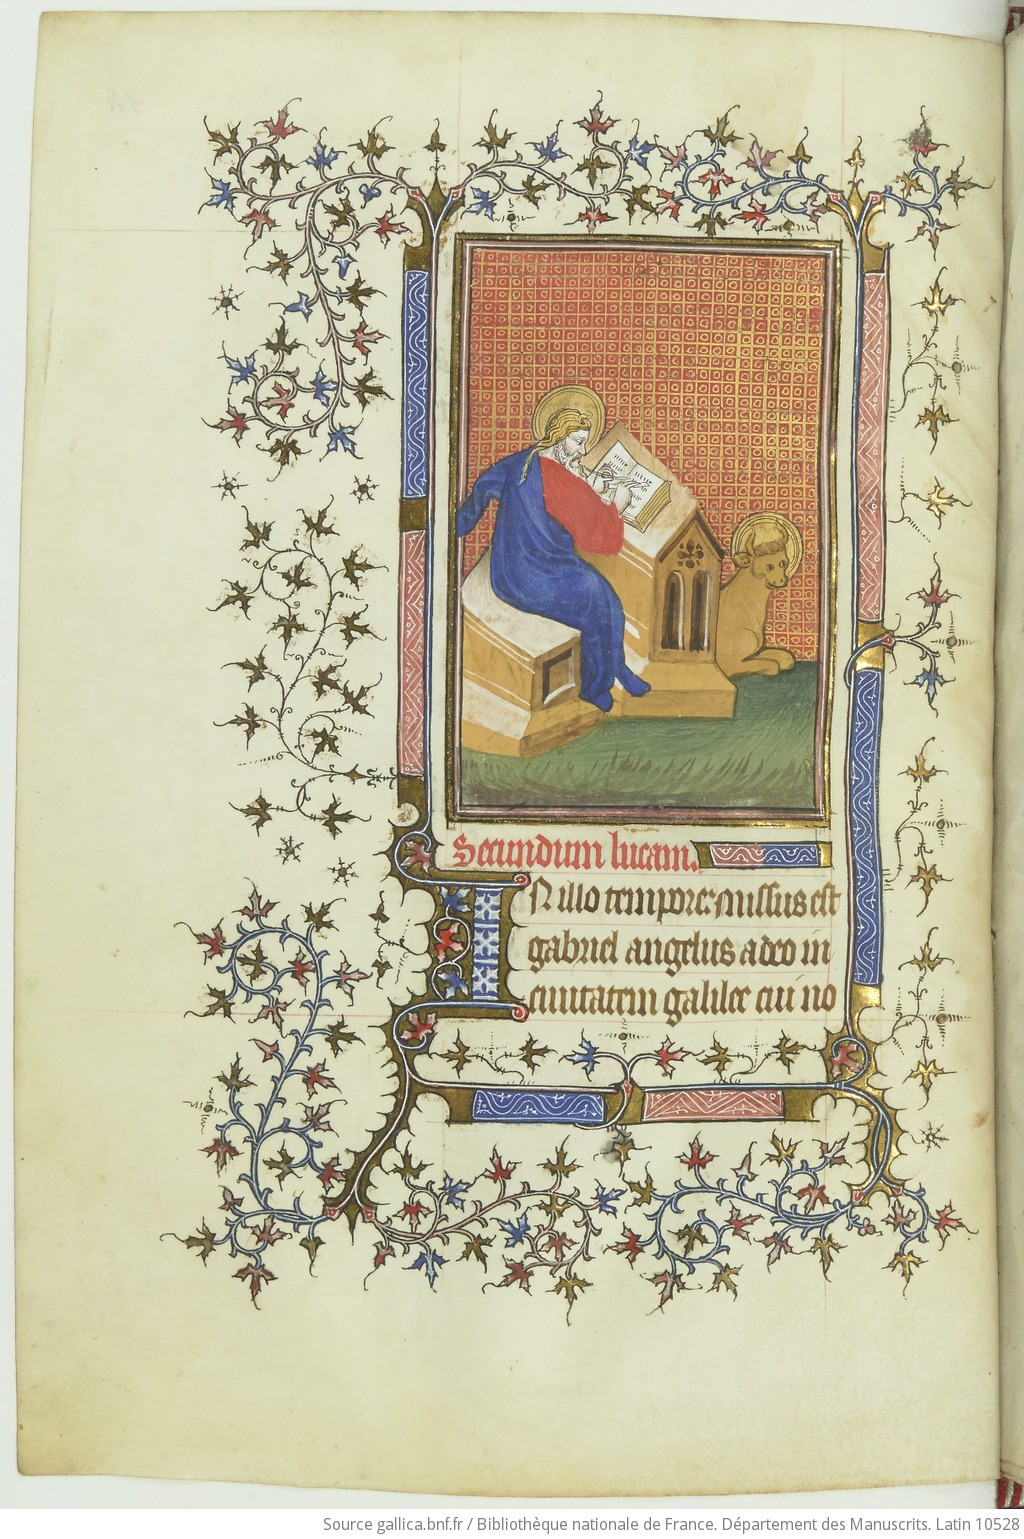 Secundum lucam.
IN illo tempore: missus est
gabriel angelus a deo in
ciuitatem galilee cui no
Source gallica.bnf.fr / Bibliothèque nationale de France. Département des Manuscrits. Latin 10528